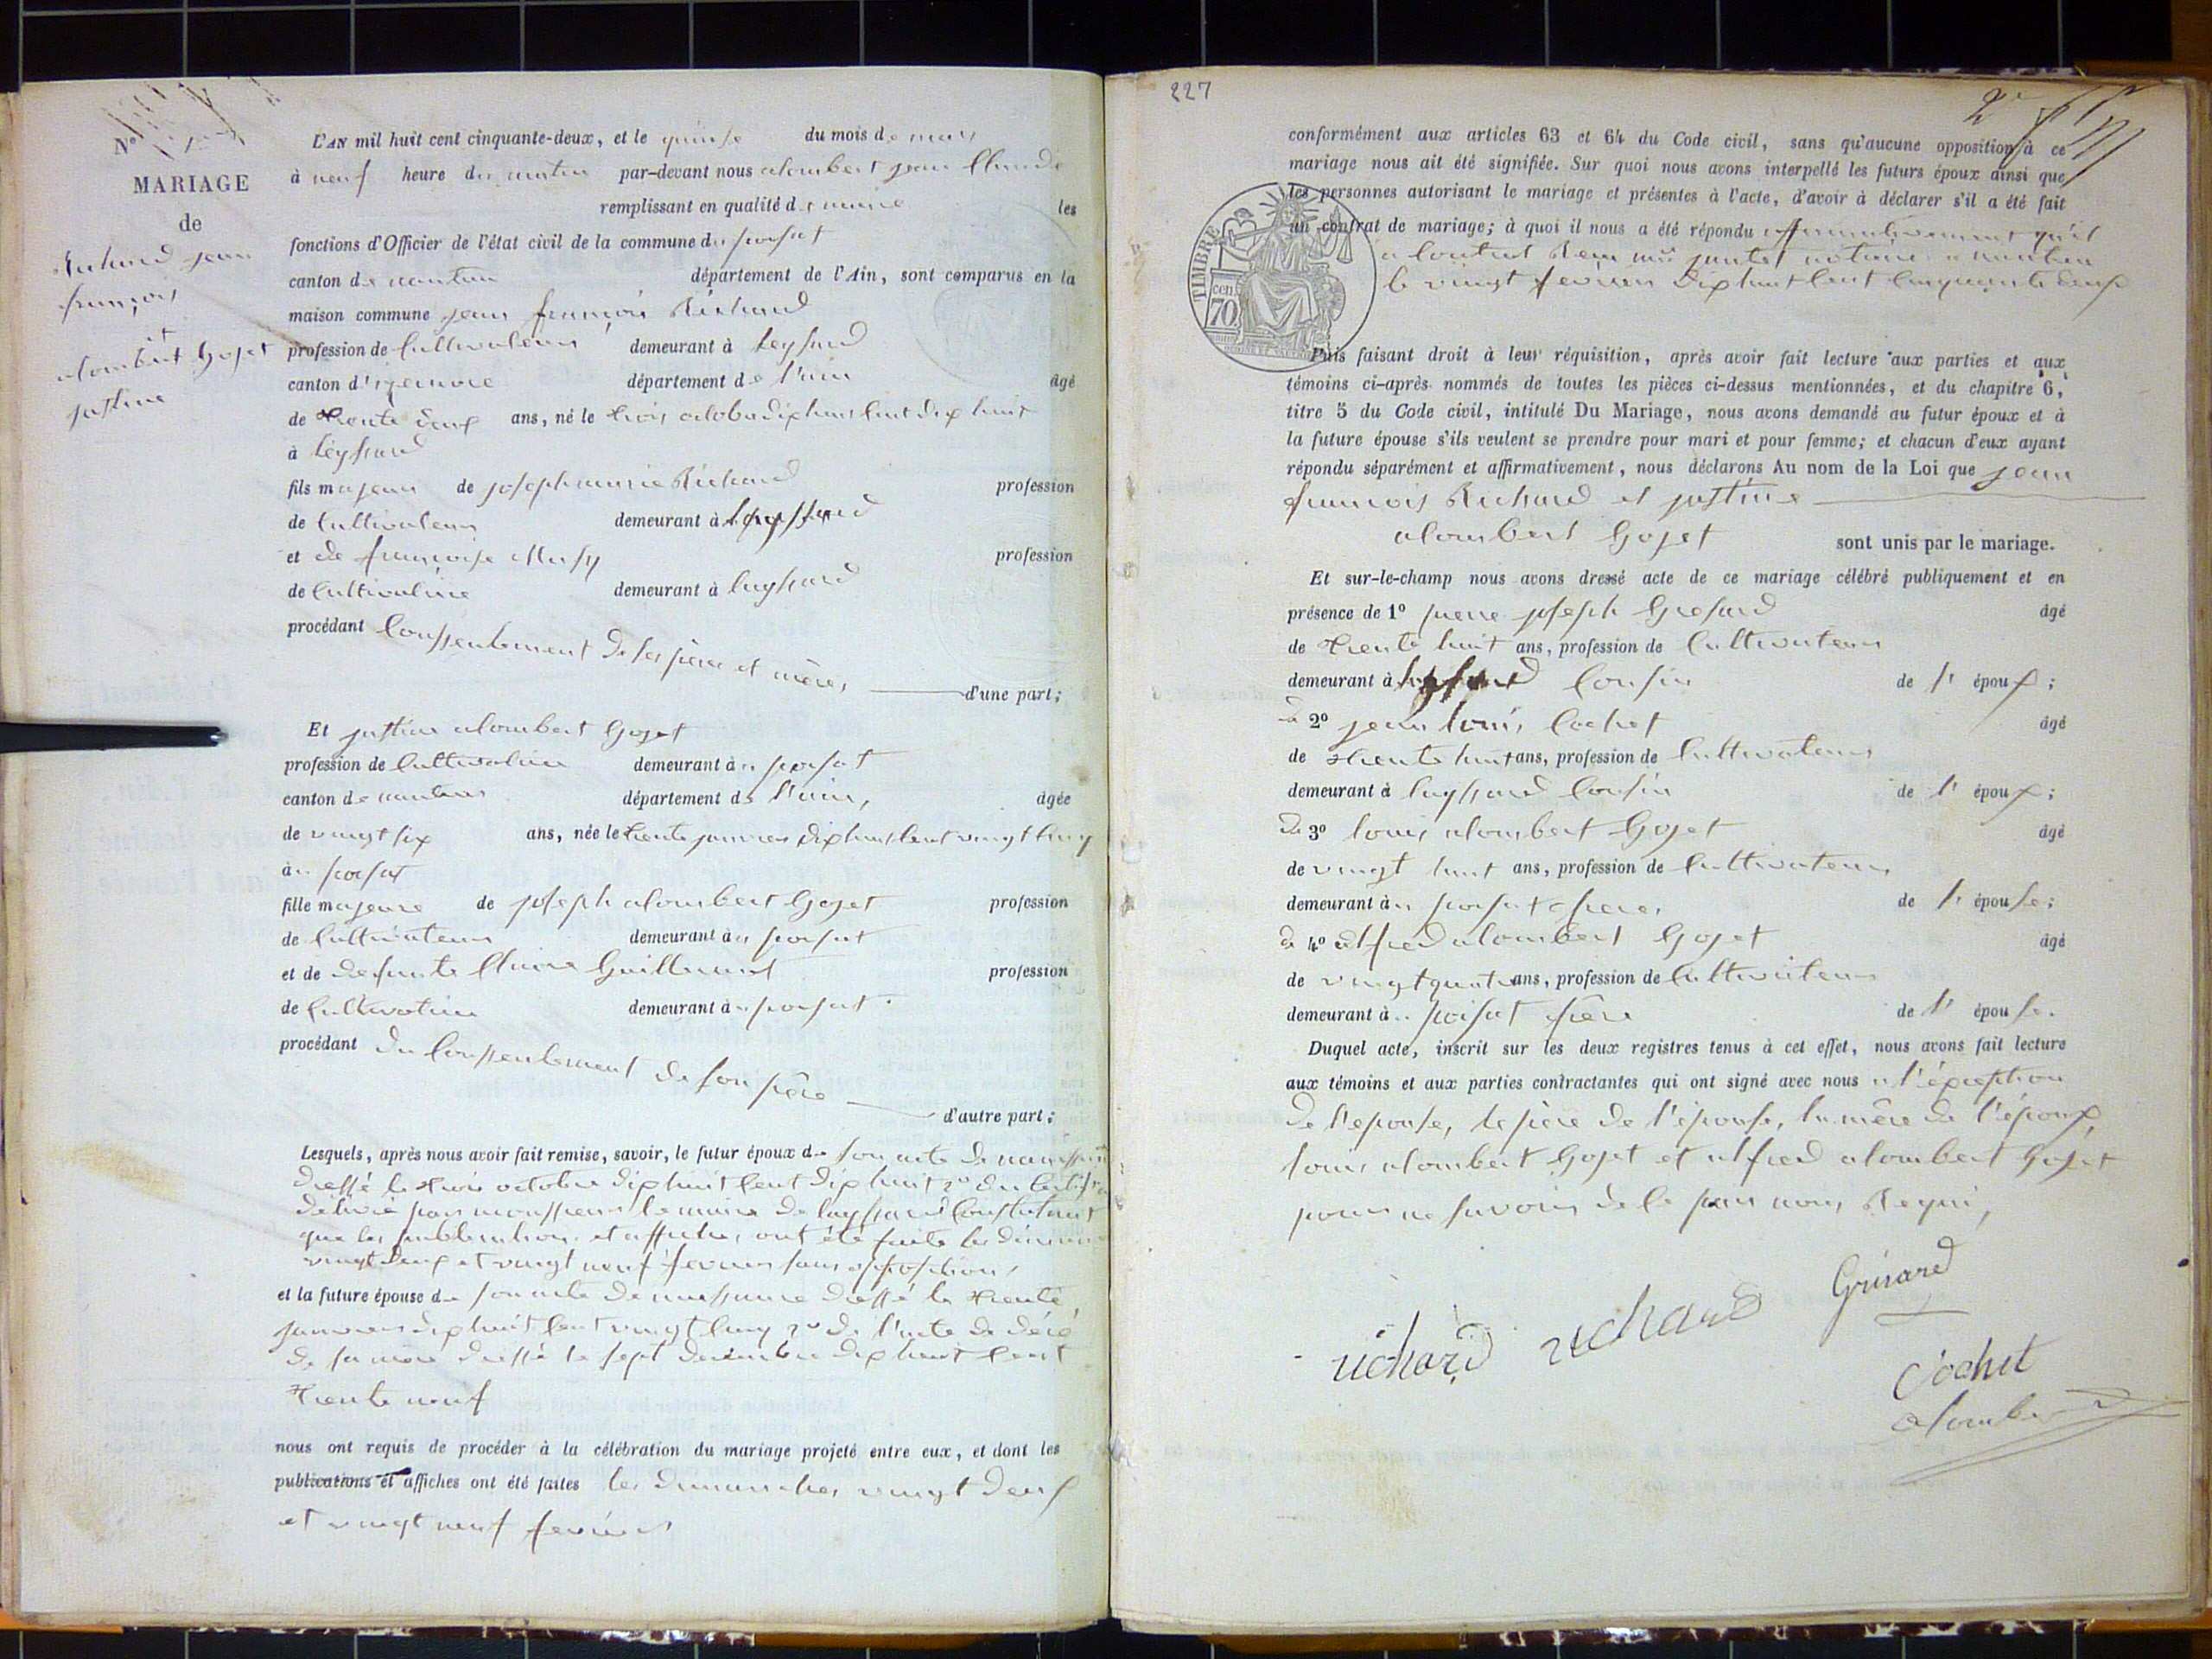 N°
MARIAGE
de
Richard jean
françois
et
alombert Gojet
justine
L'AN mil huit cent cinquante-deux, et le quinse du mois de mars
à neuf heure du matin par-devant nous alombert jean Claude
remplissant en qualité de maire les
fonctions d'Officier de l'état civil de la commune du poisat
canton de nantua département de l'Ain, sont comparus en la
maison commune jean françois Richard
profession de Cultivateur demeurant à Leyssard
canton d'izernore département de l'ain âgé
de trente deux ans, né le trois octobre dix huit Cent dix huit
à Leyssard
fils majeur de joseph marie Richard profession
de Cultivateur demeurant à Leyssard
et de françoise Musy profession
de Cultivatrice demeurant à Layssard
procédant Conssentement de ses père et mère, d'une part;
Et justine alombert Gojet
profession de Cultivatrice demeurant à au poisat
canton de nantua département de l'ain, âgée
de vingt six ans, née le trente janvier dix huit Cent vingt Cinq
à au poisat
fille majeure de joseph alombert Gojet profession
de Cultivateur demeurant à au poisat
et de defunte Claire Guillermet profession
de Cultivatrice demeurant à au poisat
procédant du Conssentement de son père d'autre part;
Lesquels, après nous avoir fait remise, savoir, le futur époux de son acte de naissance
dressé le trois octobre dix huit Cent dix huit 2° du Certificat
délivré par monssieur le maire de Layssard Constatant
que les publication et affiches ont été faite les dimanche
vingt deux et vingt neuf fevrier sans opposition,
et la future épouse de son acte de naissance dressé le trente
janvier dix huit Cent vingt Cinq 2° de l'acte de décé
de sa mère dressé le sept decembre dix huit Cent
trente neuf
nous ont requis de procéder à la célébration du mariage projeté entre eux, et dont les
publications et affiches ont été faites les dimanches vingt deux
et vingt neuf fevrier
227
conformément aux articles 63 et 64 du Code civil, sans qu'aucune opposition à ce
mariage nous ait été signifiée. Sur quoi nous avons interpellé les futurs époux ainsi que
les personnes autorisant le mariage et présentes à l'acte, d'avoir à déclarer s'il a été fait
un contrat de mariage; à quoi il nous a été répondu affirmativement qu'il
a Contrat notaire a nantua
le vingt fevrier dix huit Cent Cinquante deux
TIMBRE
70 cen
Puis faisant droit à leur réquisition, après avoir fait lecture aux parties et aux
témoins ci-après nommés de toutes les pièces ci-dessus mentionnées, et du chapitre 6,
titre 5 du Code civil, intitulé Du Mariage, nous avons demandé au futur époux et à
la future épouse s'ils veulent se prendre pour mari et pour femme; et chacun d'eux ayant
répondu séparément et affirmativement, nous déclarons Au nom de la Loi que jean
francois Richard et justine
alombert Gojet sont unis par le mariage.
Et sur-le-champ nous avons dressé acte de ce mariage célébré publiquement et en
présence de 1° pierre joseph Gresard âgé
de trente huit ans, profession de Cultivateur
demeurant à Leyssard Cousin de l' époux;
de 2° jean louis Cochet âgé
de trente huit ans, profession de Cultivateur
demeurant à Layssard Cousin de l' époux;
de 3° louis alombert Gojet âgé
de vingt huit ans, profession de Cultivateur
demeurant à au poisat frere, de l' épouse;
de 4° alfred alombert Gojet âgé
de vingt quatre ans, profession de Cultivateur
demeurant à au poisat frère de l' épouse.
Duquel acte, inscrit sur les deux registres tenus à cet effet, nous avons fait lecture
aux témoins et aux parties contractantes qui ont signé avec nous a l'éxception
de l'epouse, le père de l'épouse, la mère de l'époux,
louis alombert Gojet et alfred alombert Gojet
pour ne savoir de le par nous Requi,
richard richard Grisard
Cochet
alombert